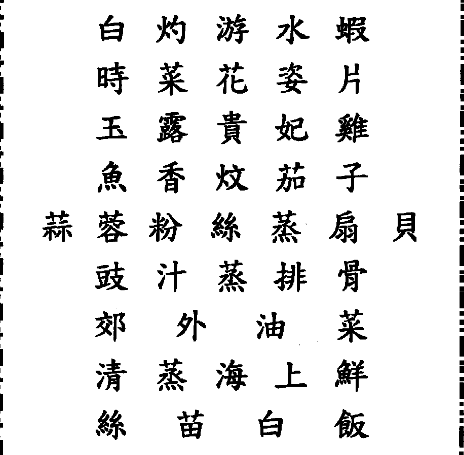 白灼游水蝦
時菜花姿片
玉露貴妃雞
魚香炆茄子
蒜蓉粉絲蒸扇貝
豉汁蒸排骨
郊外油菜
清蒸海上鮮
絲苗白飯